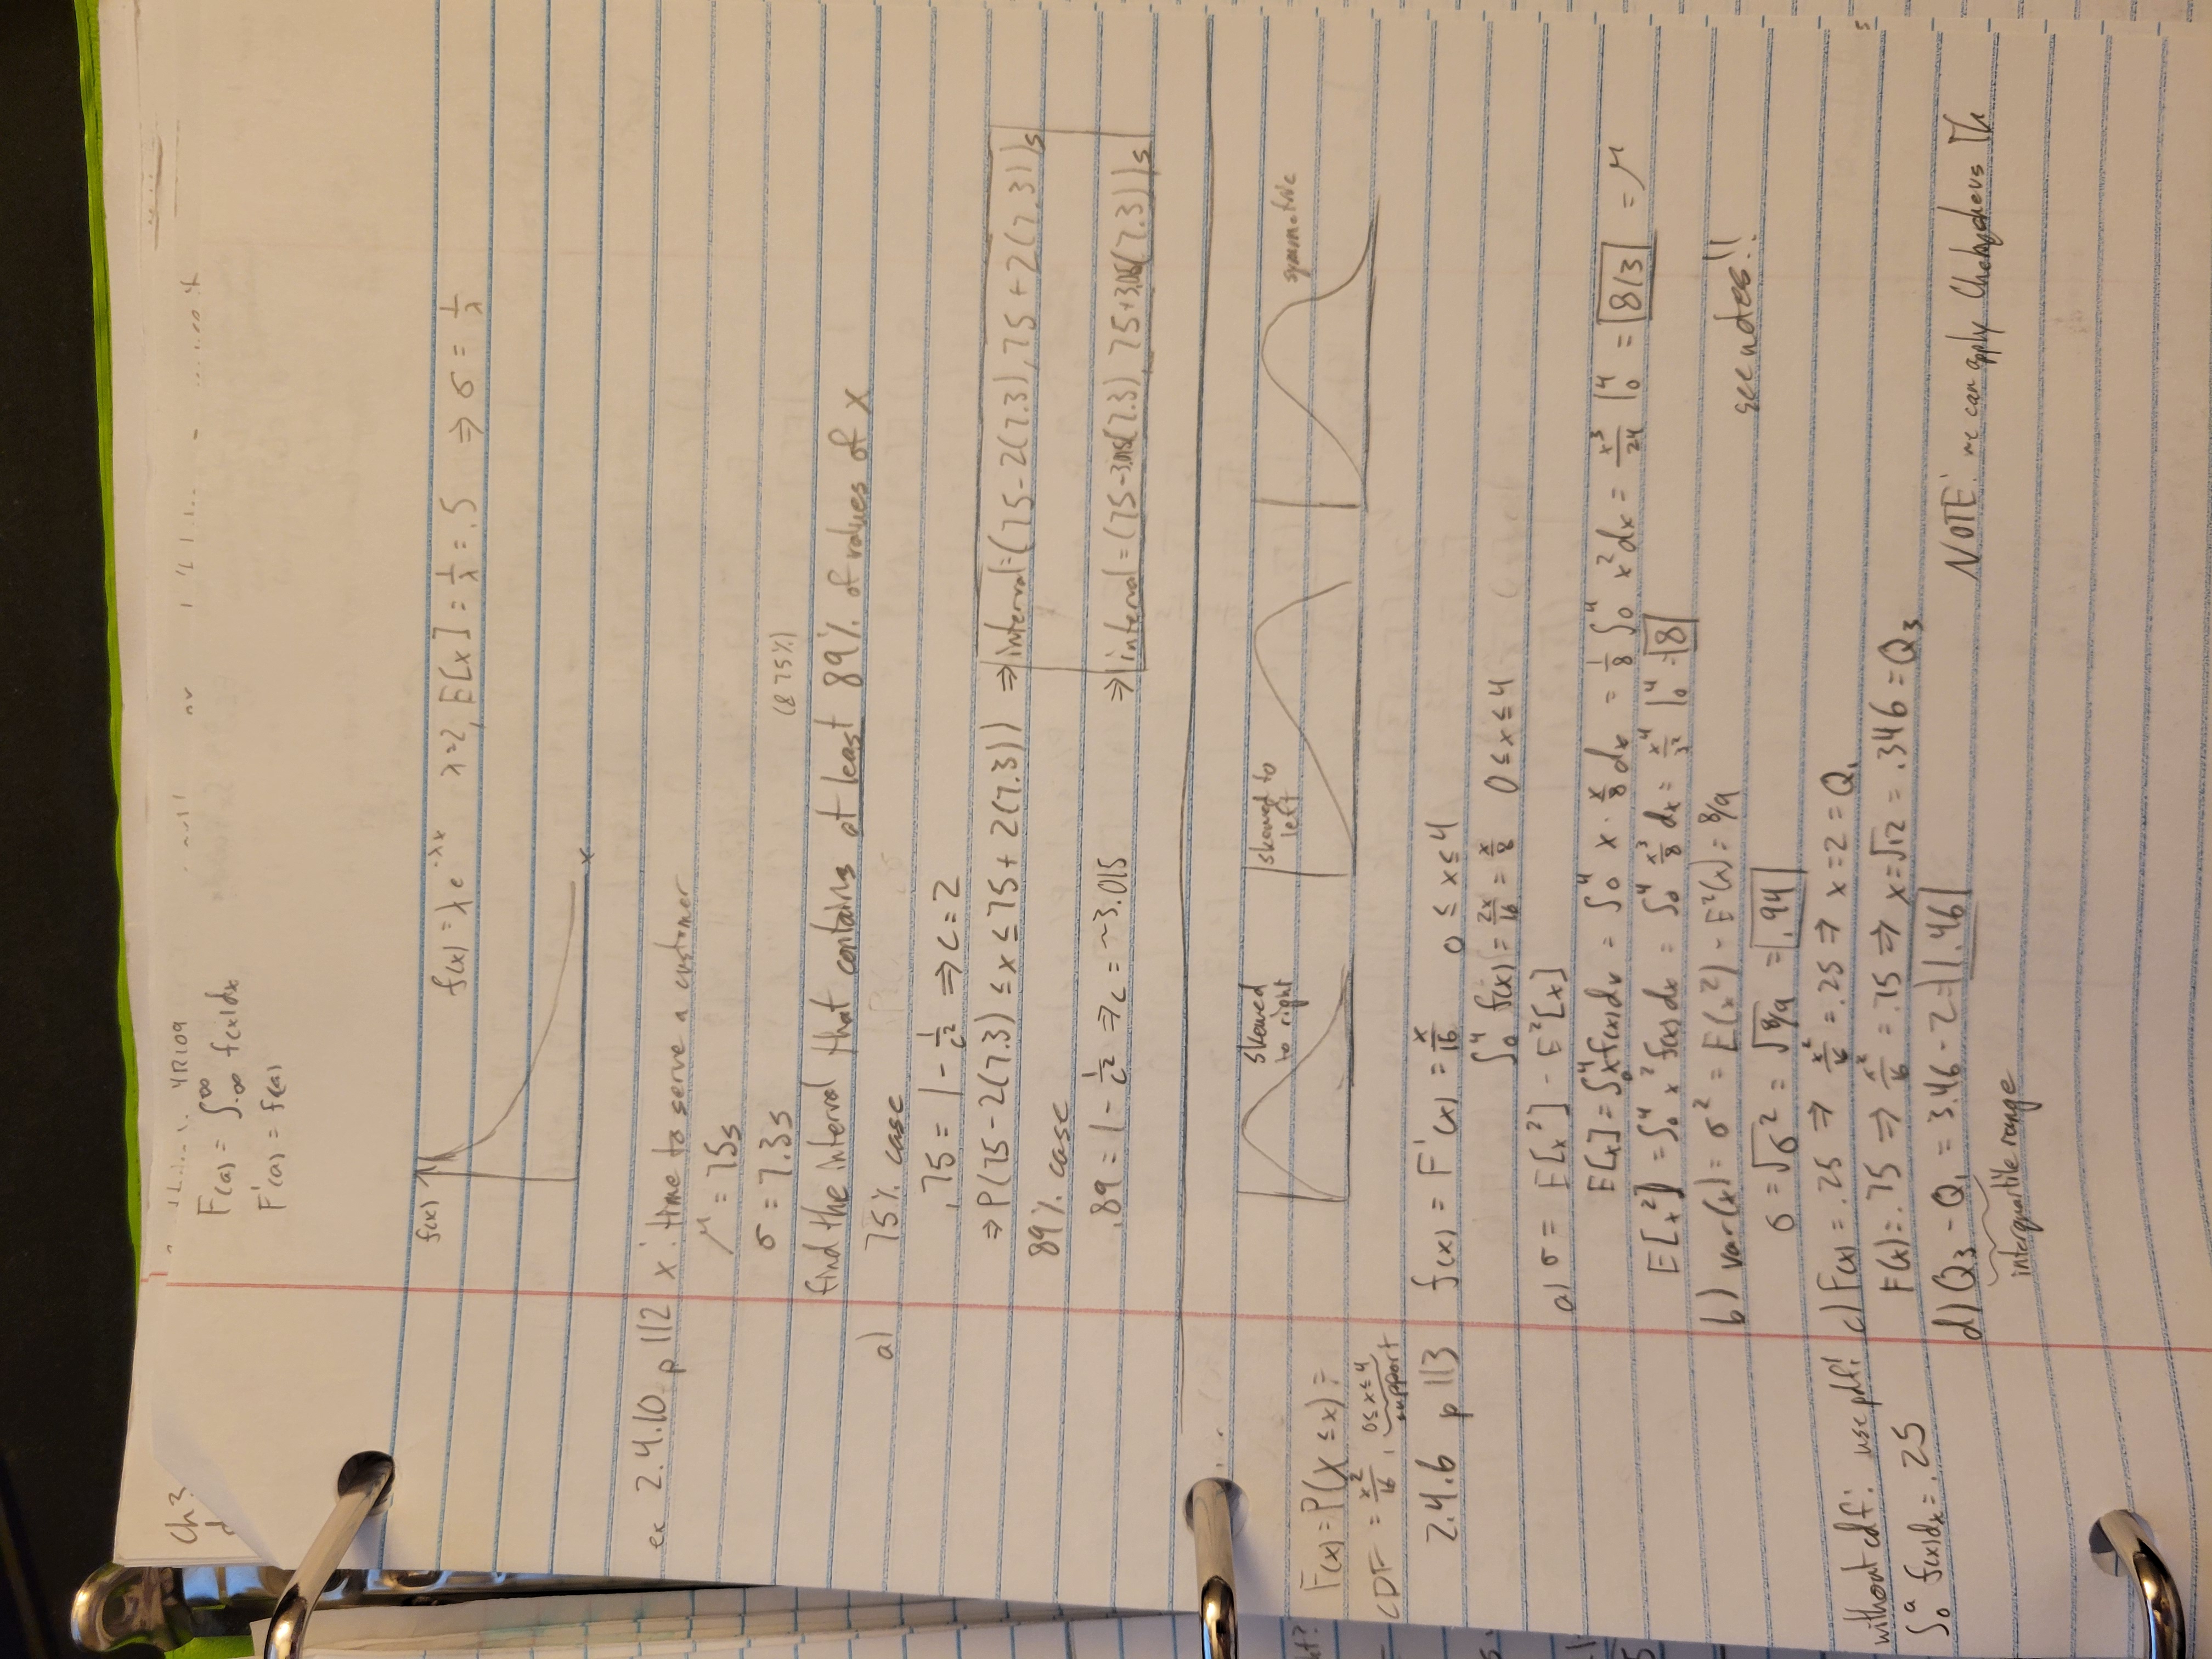 Ch 3
4R109
F(a) = ∫_{-∞}^{∞} f(x)dx
F'(a) = f(a)
f(x)
f(x) = λe^{-λx} λ=2, E[x] = 1/λ = .5 ⇒ σ = 1/λ
x
ex 2.4.10 p 112 x: time to serve a customer
μ = 75s
σ = 7.3s
(& 75%)
find the interval that contains at least 89% of values of x
a) 75% case
.75 = 1 - 1/c² ⇒ c = 2
⇒ P(75 - 2(7.3) ≤ x ≤ 75 + 2(7.3)) ⇒ interval = (75 - 2(7.3), 75 + 2(7.3))s
89% case
.89 = 1 - 1/c² ⇒ c = ~3.015 ⇒ interval = (75 - 3.015(7.3), 75 + 3.015(7.3))s
skewed to right
skewed to left
symmetric
F(x) = P(X ≤ x) =
CDF = x²/16, 0 ≤ x ≤ 4
support
2.4.6 p 113 f(x) = F'(x) = x/16 0 ≤ x ≤ 4
∫_0^4 f(x) = 2x/16 = x/8 0 ≤ x ≤ 4
a) σ = E[x²] - E²[x]
E[x] = ∫_0^4 x f(x)dx = ∫_0^4 x · x/8 dx = 1/8 ∫_0^4 x² dx = x³/24 |_0^4 = 8/3 = μ
E[x²] = ∫_0^4 x² f(x)dx = ∫_0^4 x³/8 dx = x⁴/32 |_0^4 = 8
b) var(x) = σ² = E(x²) - E²(x) = 8/9
see notes!!
σ = √σ² = √8/9 = .94
without cdf: use pdf!
c) F(x) = .25 ⇒ x²/16 = .25 ⇒ x = 2 = Q₁
F(x) = .75 ⇒ x²/16 = .75 ⇒ x = √12 = .346 = Q₃
∫_0^a f(x)dx = .25
d) Q₃ - Q₁ = 3.46 - 2 = 1.46
interquartile range
NOTE: we can apply Chebyshevs Th